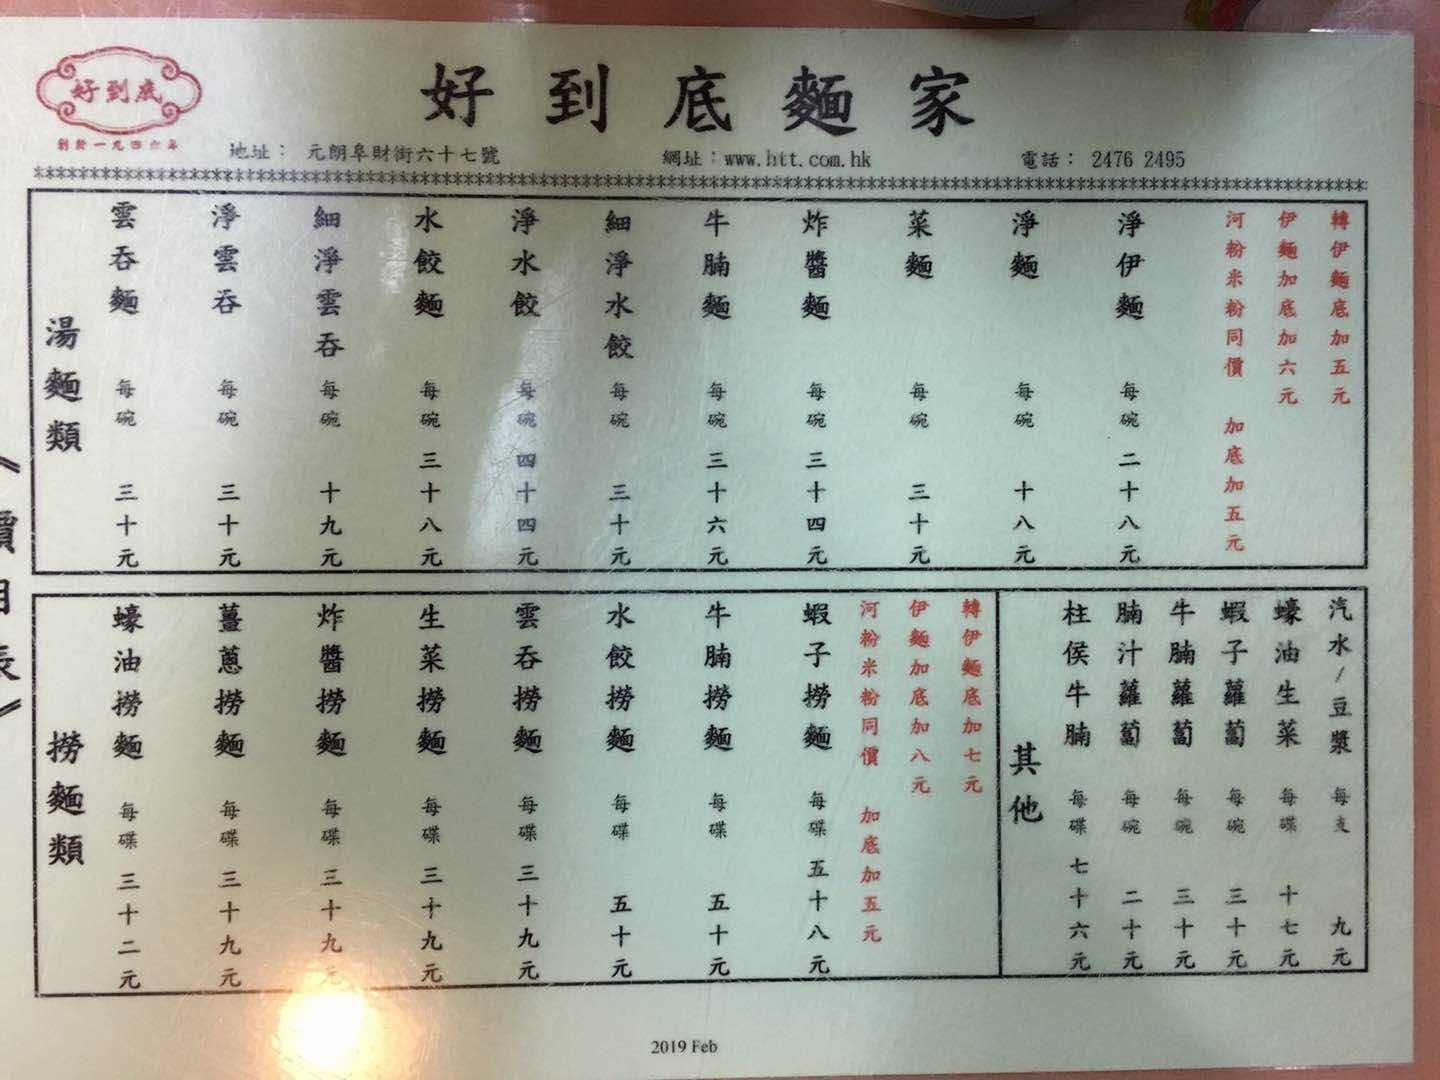 好到底
創於一九四六年
好到底麵家
地址： 元朗阜財街六十七號
網址：www.htt.com.hk
電話： 2476 2495
湯麵類
雲吞麵 每碗 三十元
淨雲吞 每碗 三十元
細淨雲吞 每碗 十九元
水餃麵 每碗 三十八元
淨水餃 每碗 四十四元
細淨水餃 每碗 三十元
牛腩麵 每碗 三十六元
炸醬麵 每碗 三十四元
菜麵 每碗 三十元
淨麵 每碗 十八元
淨伊麵 每碗 二十八元
河粉米粉同價 加底加五元
伊麵加底加六元
轉伊麵底加五元
撈麵類
蠔油撈麵 每碟 三十二元
薑蔥撈麵 每碟 三十九元
炸醬撈麵 每碟 三十九元
生菜撈麵 每碟 三十九元
雲吞撈麵 每碟 三十九元
水餃撈麵 每碟 五十元
牛腩撈麵 每碟 五十元
蝦子撈麵 每碟 五十八元
河粉米粉同價 加底加五元
伊麵加底加八元
轉伊麵底加七元
其他
柱侯牛腩 每碟 七十六元
腩汁蘿蔔 每碗 二十元
牛腩蘿蔔 每碗 三十元
蝦子蘿蔔 每碗 三十元
蠔油生菜 每碟 十七元
汽水/豆漿 每支 九元
2019 Feb